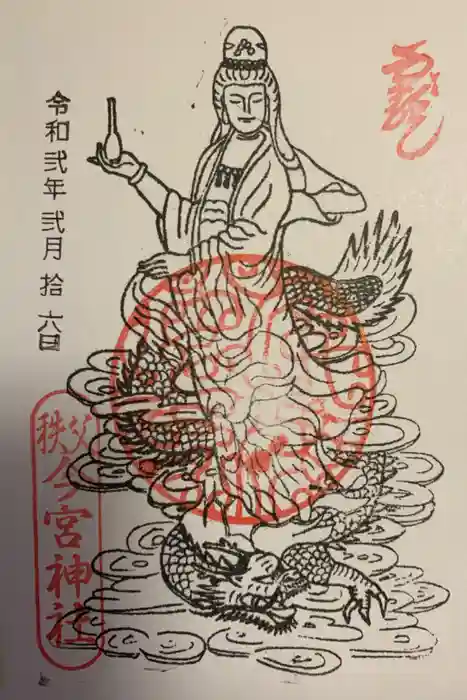 令和弐年弐月拾六日
秩父今宮神社